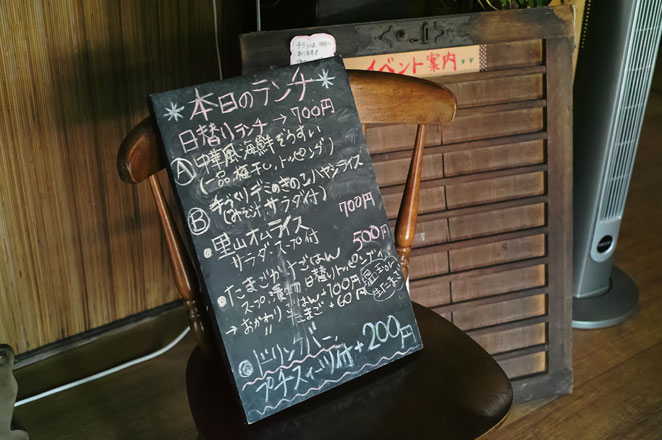 イベント案内
*本日のランチ*
日替りランチ→700円
Ⓐ中華風海鮮ぞうすい
(一品,梅干し,トッピング)
Ⓑ手づくりデミのきのこハヤシライス
(みそ汁,サラダ付)
・里山オムライス 700円
サラダ・スープ付
・たまごかけごはん 500円
スープ・漬物・日替りトッピング
→おかわりごはん+100円
〃 たまご+60円
ドリンクバー
プチスイーツ付+200円